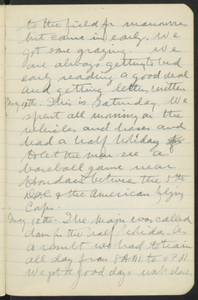 to the field for manouvres
but came in early. We
got some grazing. We
are always getting to bed
early reading a good deal
and getting letters written
May 11th. This is Saturday. We
spent all morning on the
vehicles and horses and
had a half holiday
to let the men see a
baseball game near
Houdain between the 1st
D.A.C & the American Engrs
Corps.
May 12th. The major was called
down for the half holiday. As
a result we had to train
all day from 8 A.M. to 6 P.M.
We got a good days work done